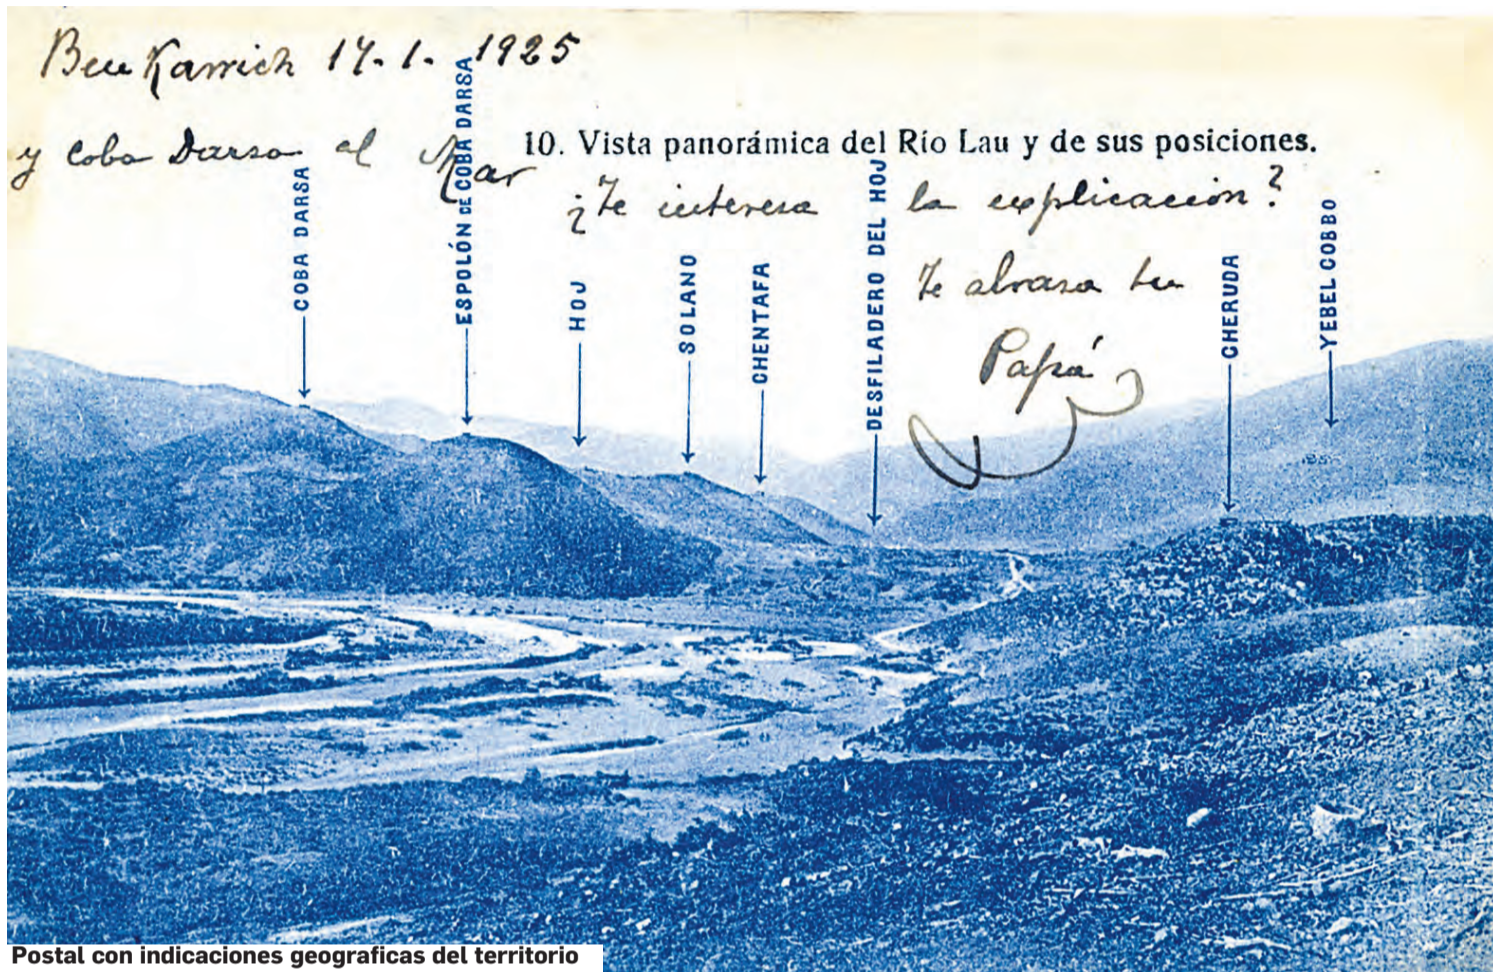 Ben Karrich 17-1-1925
y Coba Darsa al Mar
10. Vista panorámica del Río Lau y de sus posiciones.
¿Te interesa la explicación?
Te abraza tu
Papá
COBA DARSA
ESPOLÓN DE COBA DARSA
HOJ
SOLANO
CHENTAFA
DESFILADERO DEL HOJ
CHERUDA
YEBEL COBBO
Postal con indicaciones geograficas del territorio